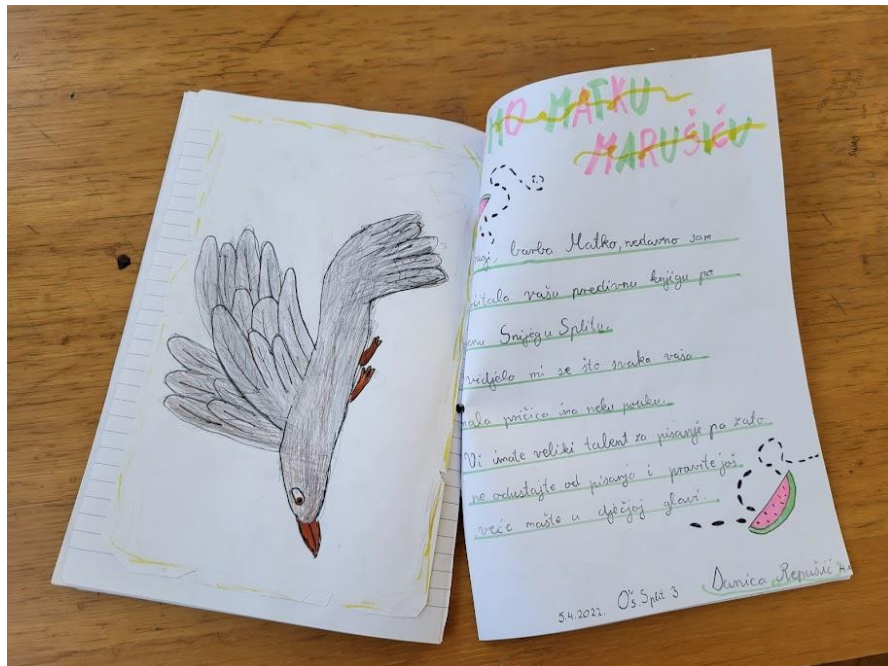 MO MATKU
MARUŠIĆU
ragi, barba Matko, nedavno sam
čitala vašu predivnu knjigu po
enu Snijeg u Splitu.
vidjelo mi se što svaka vaša
mala pričica ima neku pouku.
Vi imate veliki talent za pisanje pa zato
ne odustajte od pisanja i pravite još
veće mašte u dječjoj glavi.
5.4.2022. OŠ. Split 3 Danica Repušić